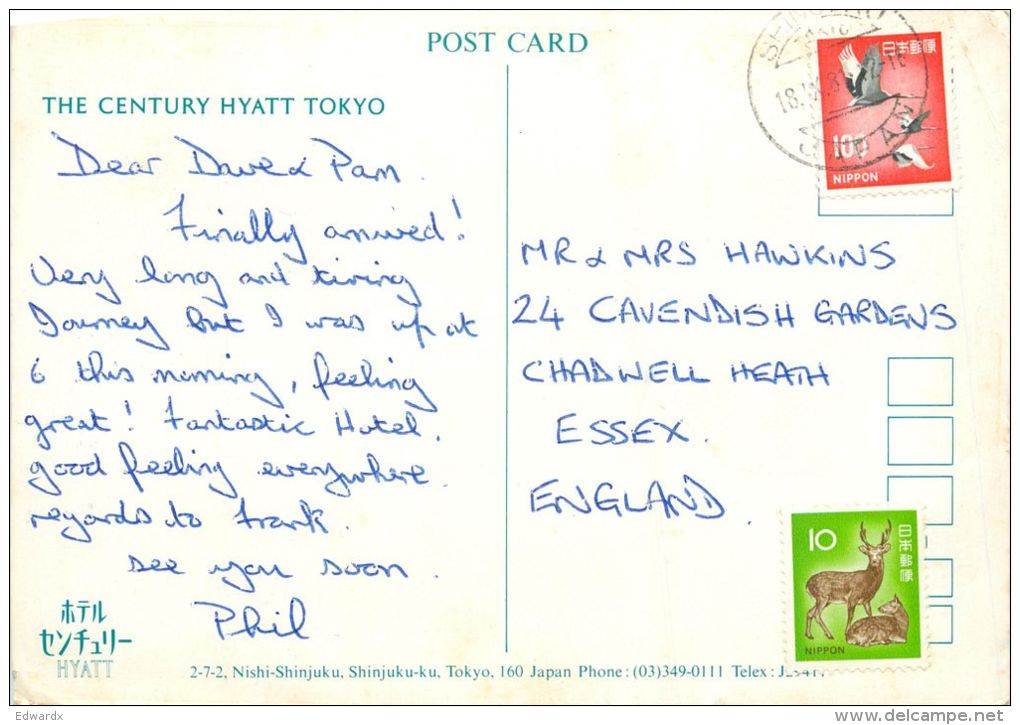 POST CARD
THE CENTURY HYATT TOKYO
Dear Dave & Pam.
Finally arrived!
Very long and tiring
Journey but I was up at
6 this morning, feeling
great! Fantastic Hotel,
good feeling everywhere.
regards to Frank.
see you soon.
Phil
ホテル
センチュリー
HYATT
2-7-2, Nishi-Shinjuku, Shinjuku-ku, Tokyo, 160 Japan Phone: (03)349-0111 Telex:
JAPAN
日本郵便
100
NIPPON
MR & MRS HAWKINS
24 CAVENDISH GARDENS
CHADWELL HEATH
ESSEX.
ENGLAND.
10
日本郵便
NIPPON
Edwardx
www.delcampe.net